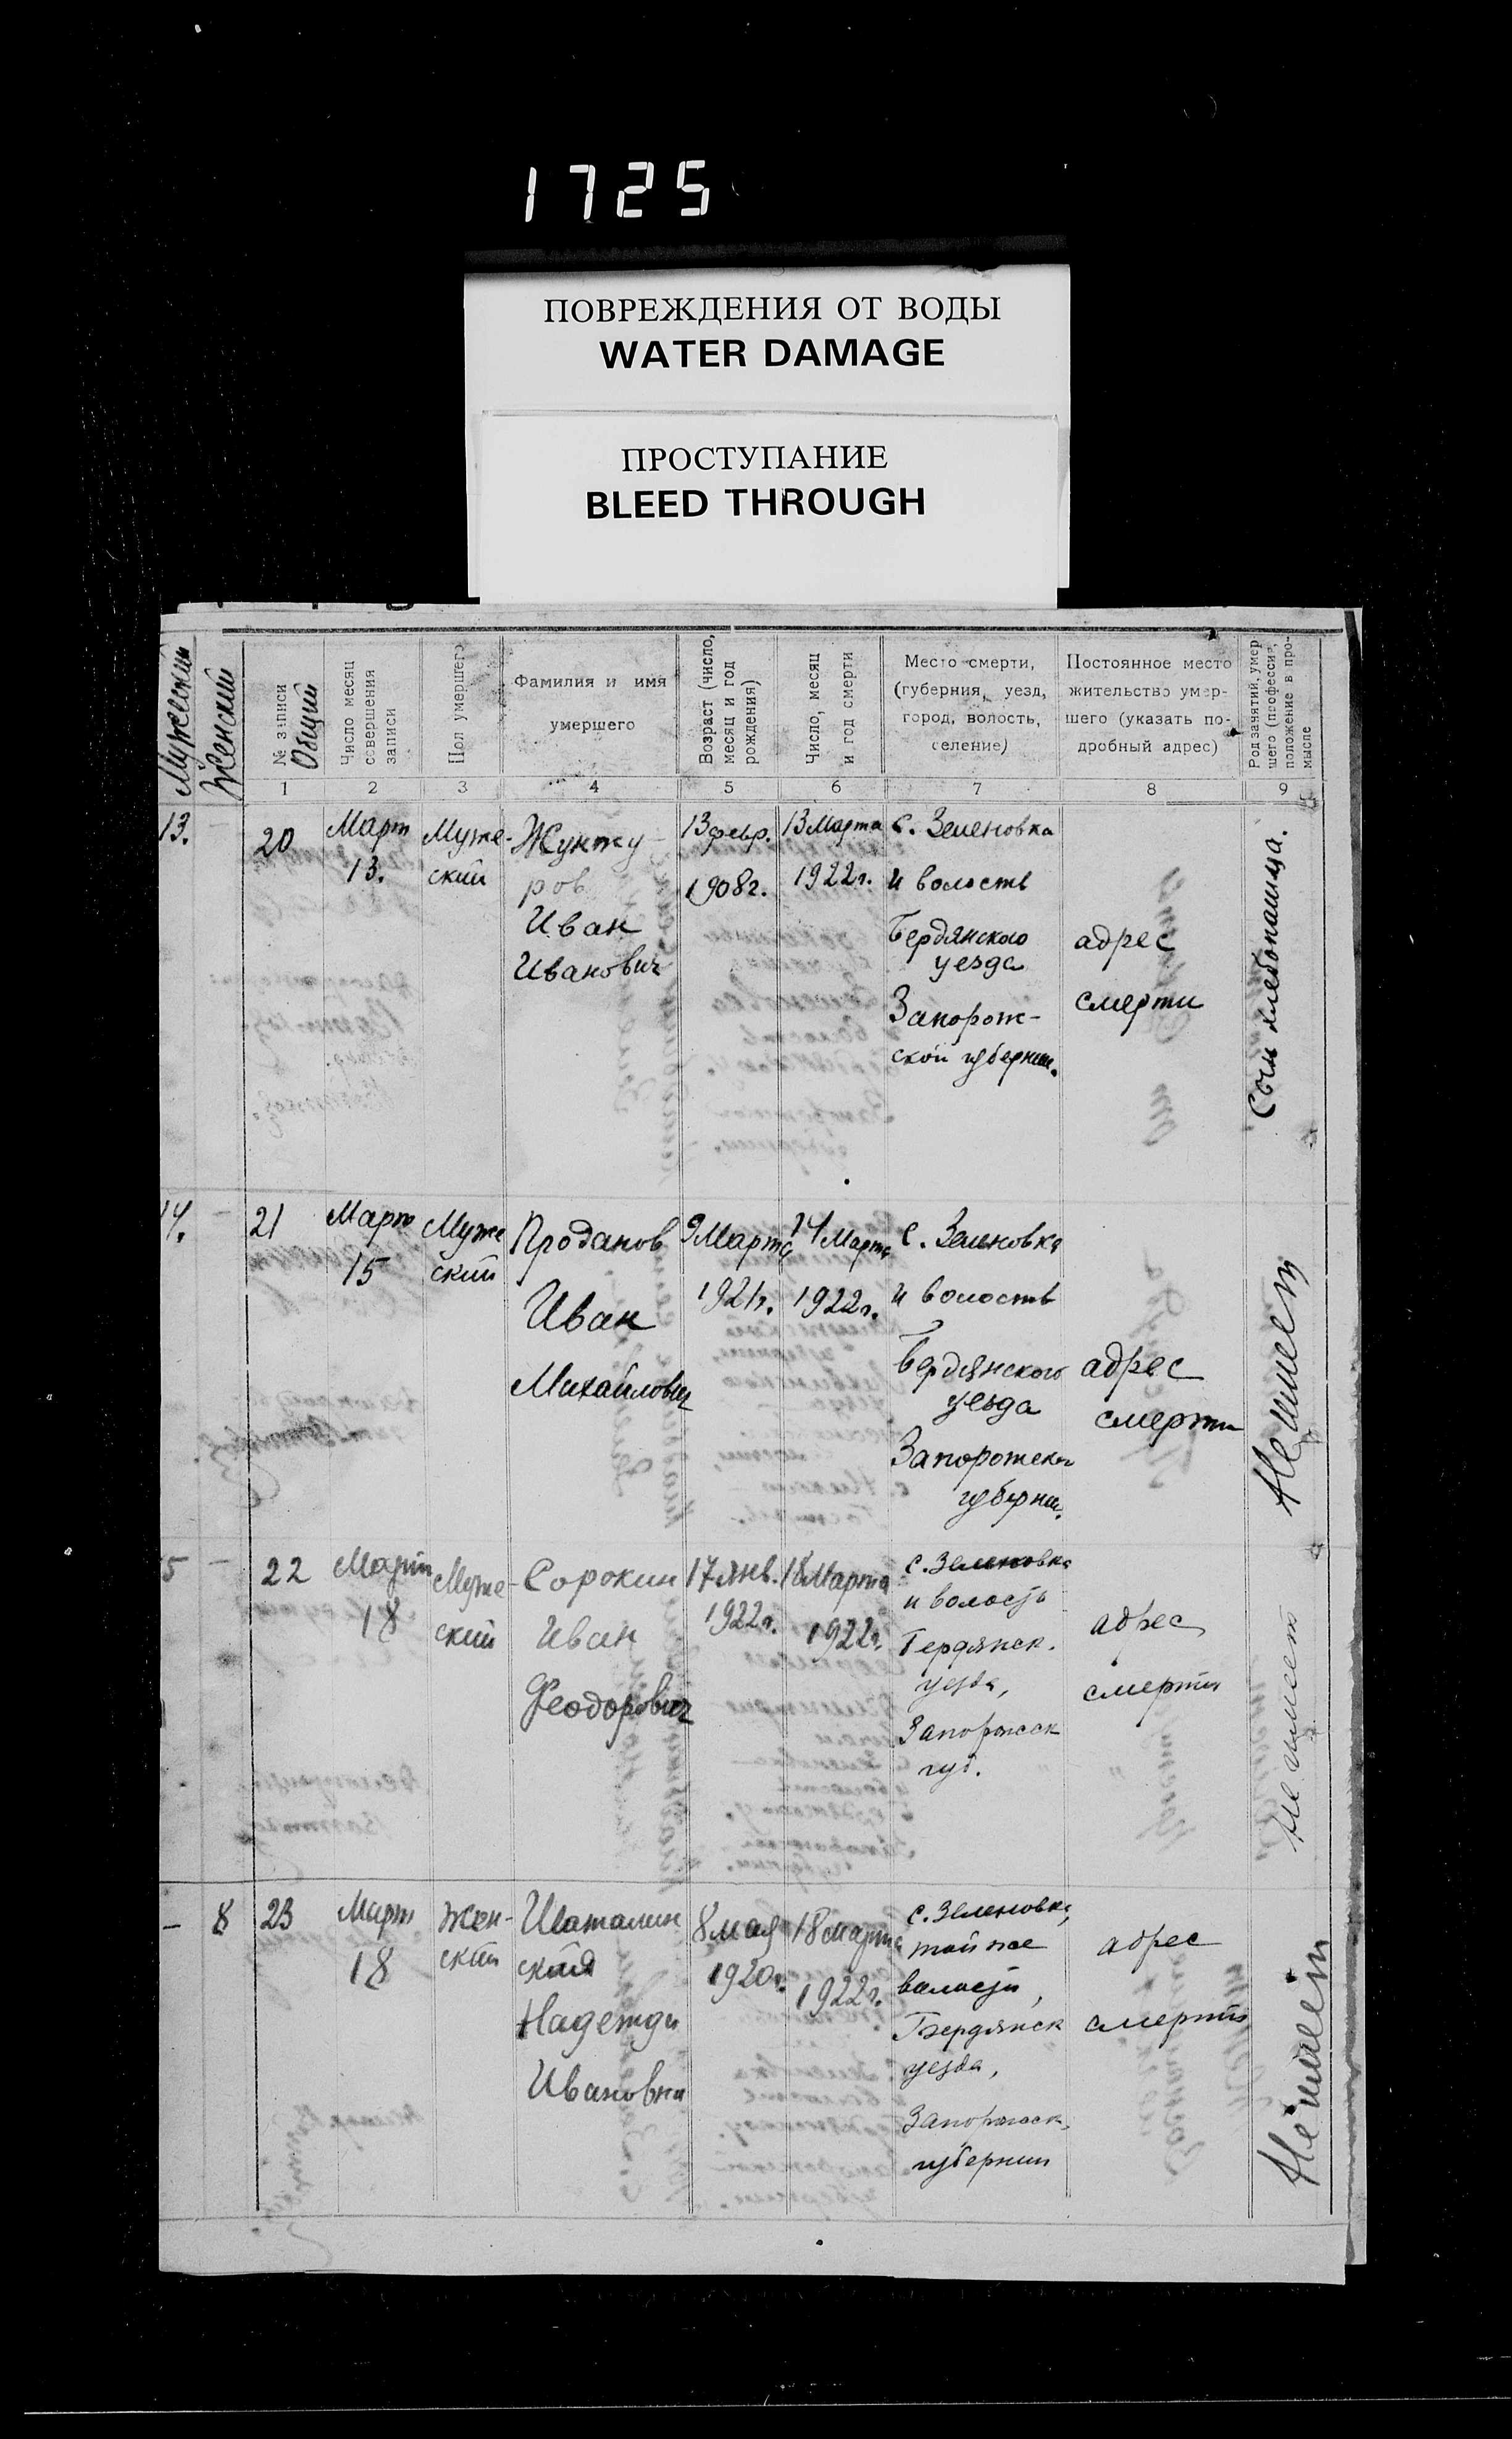 1725
ПОВРЕЖДЕНИЯ ОТ ВОДЫ
WATER DAMAGE
ПРОСТУПАНИЕ
BLEED THROUGH
Мужеский
Женский
№ записи
Общий
Число месяц
совершения
записи
Пол умершего
Фамилия и имя
умершего
Возраст (число,
месяц и год
рождения)
Число, месяц
и год смерти
Место смерти,
(губерния, уезд,
город, волость,
селение)
Постоянное место
жительство умер-
шего (указать по-
дробный адрес)
Род занятий, умер
шего (профессия,
положение в про-
мысле
1 2 3 4 5 6 7 8 9
13.
20
Март
13.
Муже-
ский
Жунжу-
ров
Иван
Иванович
13 февр.
1908г.
13 Марта
1922г.
с. Зеленовка
и волость
Бердянского
уезда
Запорож-
ской губернии.
адрес
смерти
Сын хлебопашца.
14.
-
21
Март
15
Муже
ский
Проданов
Иван
Михайлович
9 Марта
1921г.
14 Марта
1922г.
с. Зеленовка
и волость
Бердянского
уезда
Запорожской
губернии.
адрес
смерти
Не имеет
5
-
22
Март
18
Муже-
ский
Сорокин
Иван
Феодорович
17 янв.
1922г.
18 Марта
1922г.
с. Зеленовка
и волость
Бердянск.
уезда,
Запорожск
губ.
адрес
смерти
Не имеет
-
8
23
Март
18
Жен-
ский
Шаталин
ская
Надежда
Ивановна
8 мая
1920г.
18 марта
1922г.
с. Зеленовка,
той же
волости,
Бердянск
уезда,
Запорожск.
губернии
адрес
смерти
Не имеет